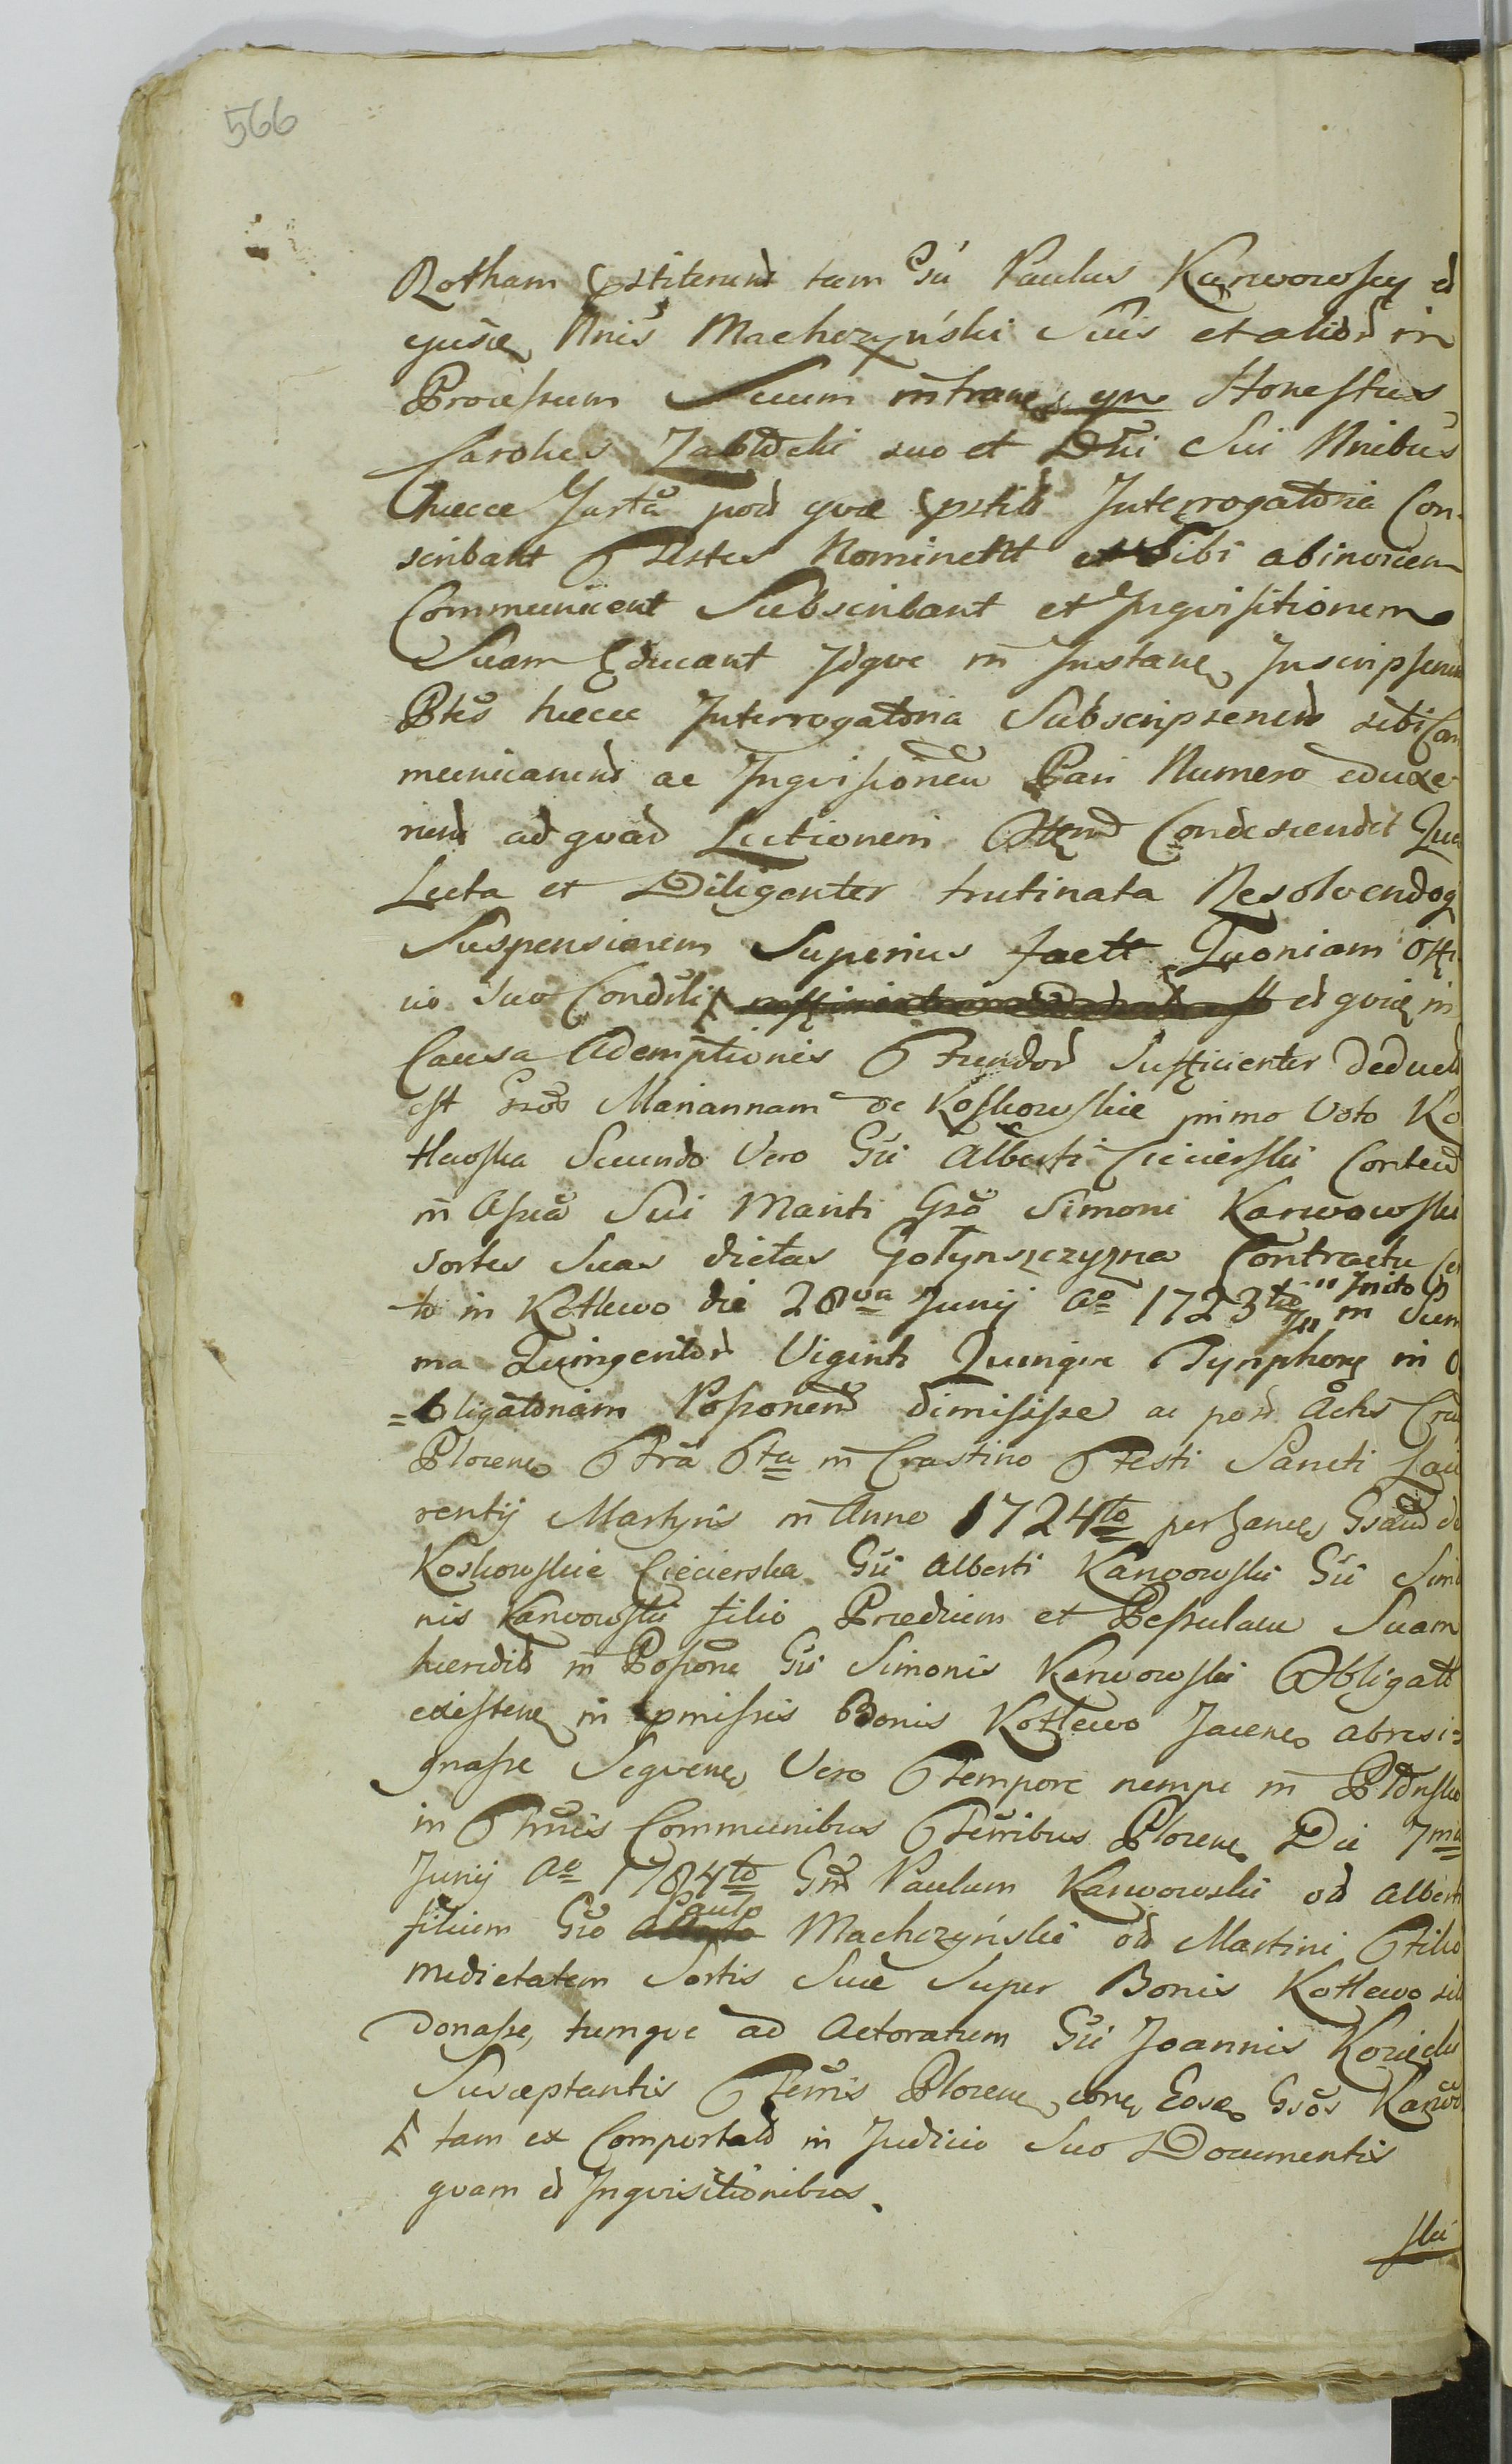 566
Rotham pstiterund tam Gsi Paulus Karwowscy ed
Nnis Machczyński Suis et aliord in
Processum Suum intrane Honestus
Carolus suo et Dni Sui Nnibus
haece Jurta pod qvae pstitd Interrogatoria Con-
scribant Testes Nominent et Sibi abinvicem
Communicent Subscribant et Inqvisitionem
Suam Educant Idqve in Instane Inscripserund
Ptes haece Interrogatoria Subscripserund sibi Com
municarund ac Inqvisionem Pari Numero eduxe-
rund ad qvod Lectionem Offend Condescendit Qua
Lecta et Diligenter trutinata Resolvendoq
Suspensionem Superius factt Qvoniam Offi
cio Suo Condili ed qvia in
Causa Ademptionis Fundod Sufficienter deduct
est Gsod Mariannam de Koskowskie primo Voto Ko
tlewska Secundo Vero Gsi Alberti Ciecierski Conted
in Assia Sui Mariti Gso Simoni Karwowski
sortes Suas dictas Gołynszczyzna Contractu Cer
to in Kotlewo die 28va Junij Ao 1723tio Inito in Sum
ma Quingentod Viginti Quinque Tynphon in O
=bligatoriam Possonend dimisisse ac pod Actis Crus
Plocene Fra 6ta in Crastino Festi Sancti Lau
rentij Martyris in Anno 1724to per Gsam de
Koskowskie Ciecierska Gsi Alberti Karwowski Gsi Simo
nis Karwowski filio Praedium et Pessulam Suam
haeredid in Possone Gsi Simonis Karwowski Obligatt
existene in pmissis Bonis Kotlewo Jacene abresi=
gnasse Seqvene Vero Tempore nempe in
in Thuis Communibus Terribus Plocene Die 7ma
Junij Ao 1784to Gsm Paulum Karwowski od Alberti
filium Gso Paulo Machczyński od Martini Filio
medietatem Sortis Suae Super Bonis Kotlewo sib
donasse, tumqve ad Actoratum Gsi Joannis
Susceptantis Terris Plocene Eose Gsos Karwo
tam ex Comportatd in Judicio Suo Documentis
qvam ed Inqvisitionibus.
ski